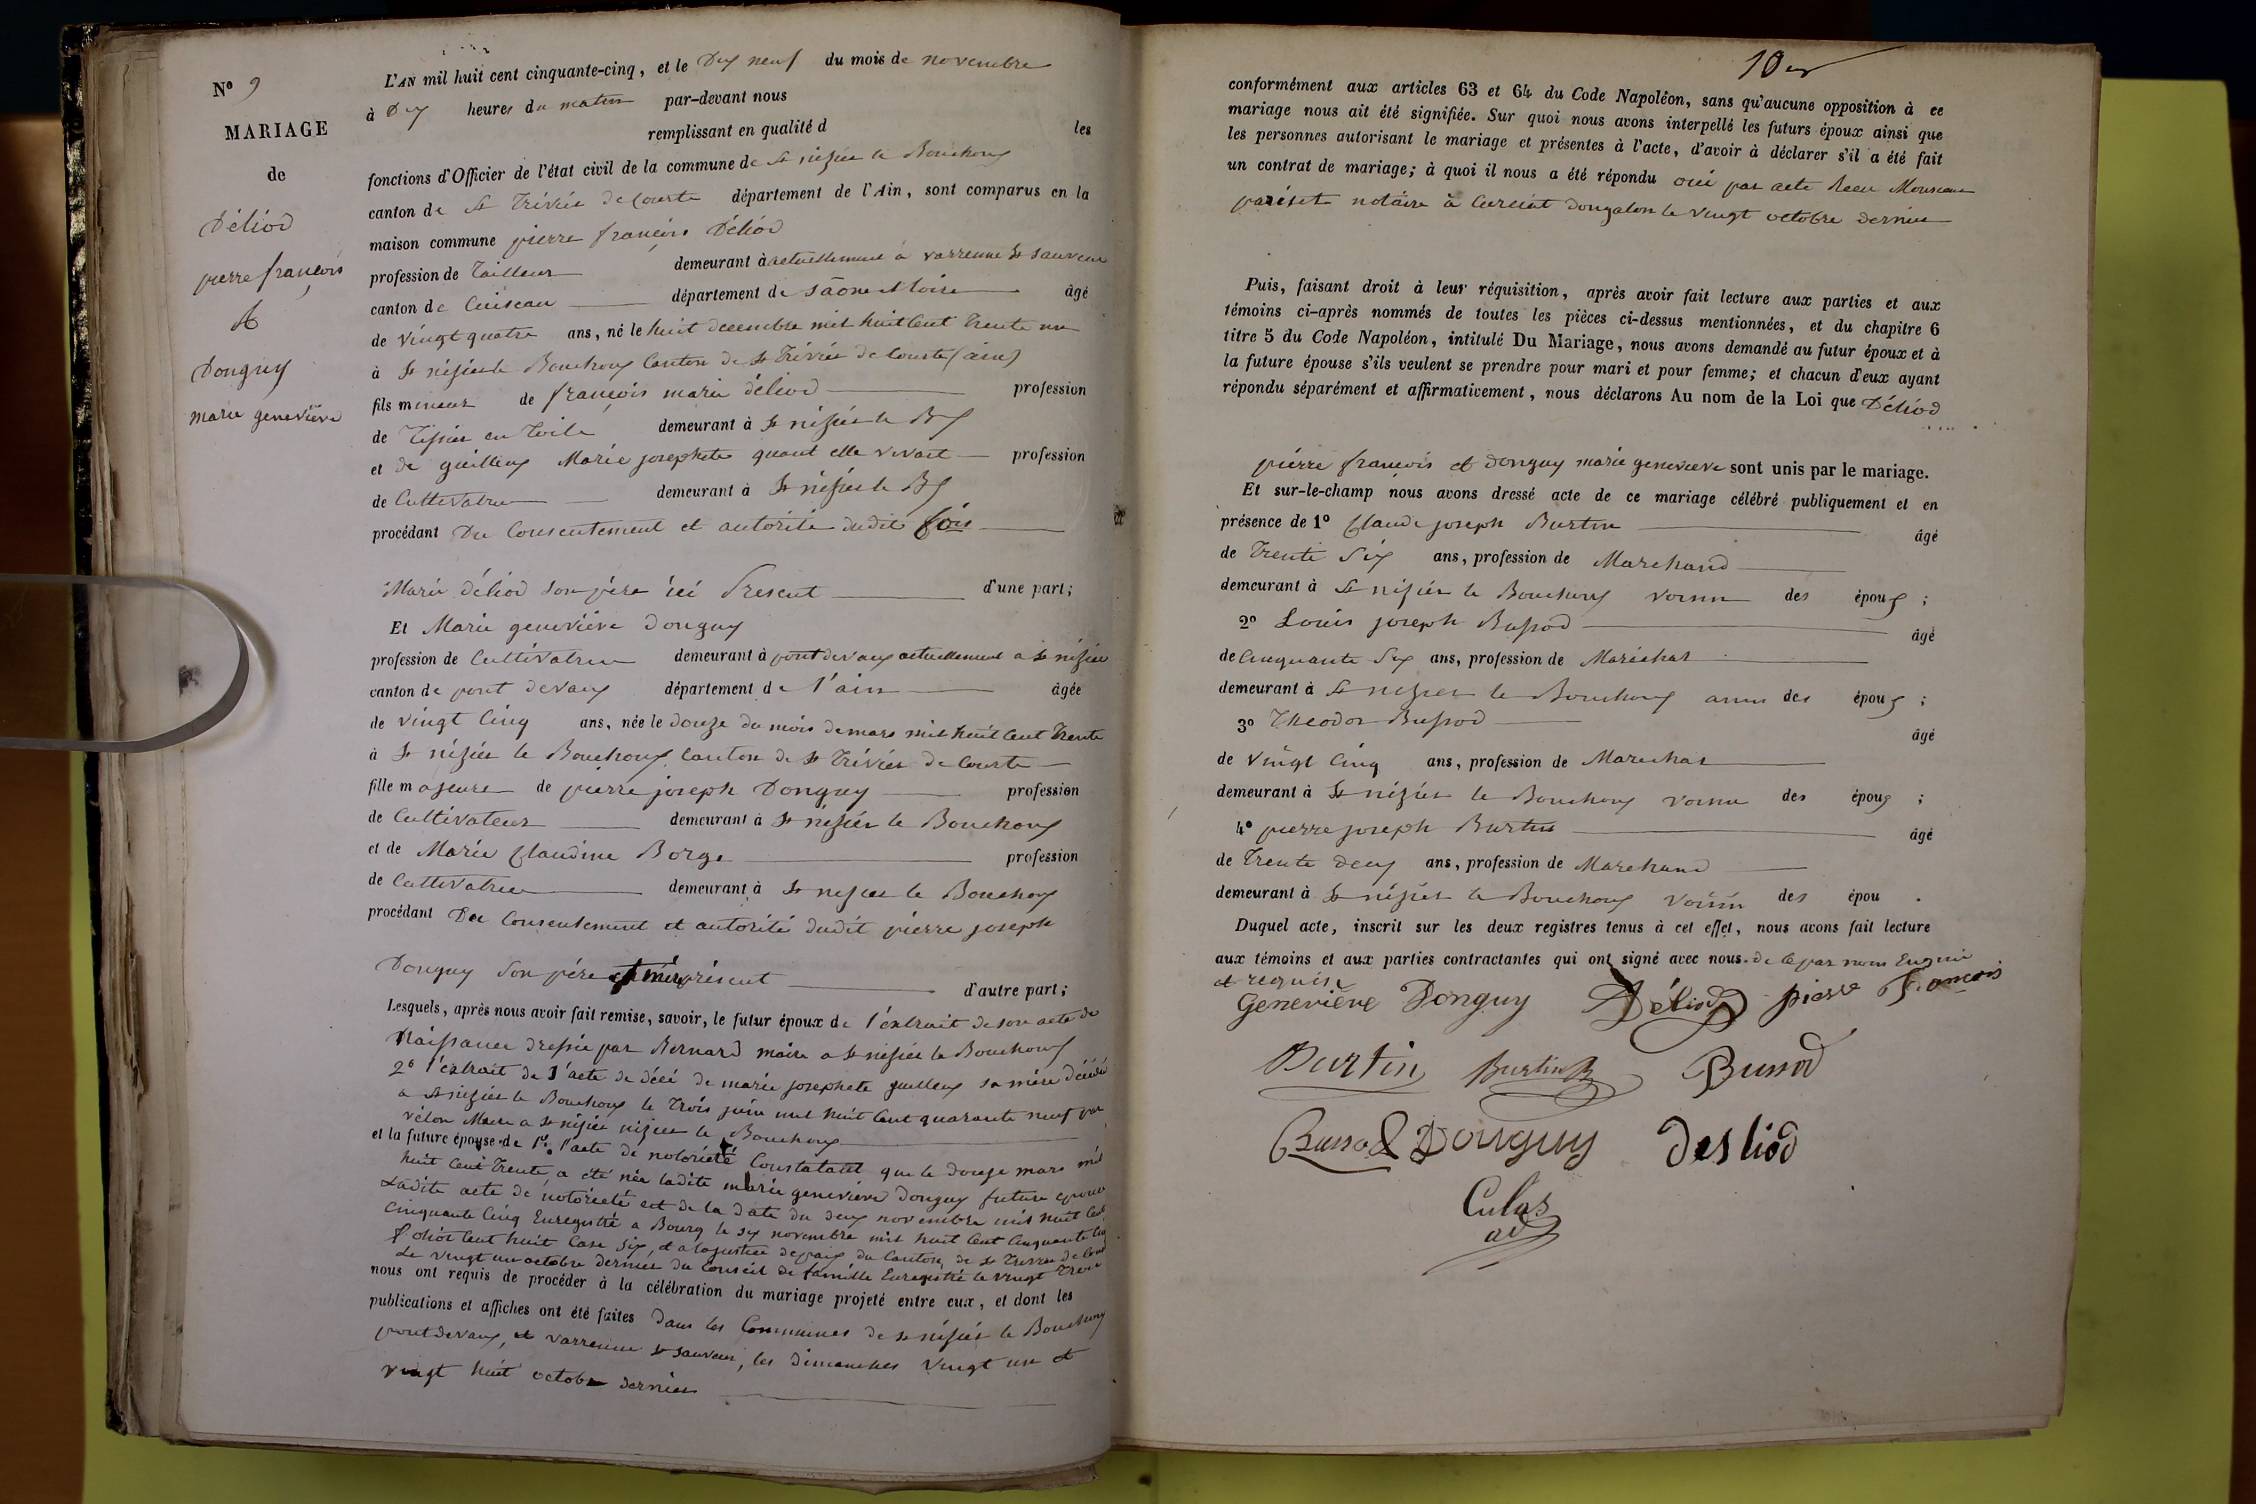 N° 9
MARIAGE
de
Déliod
pierre françois
et
Donguy
marie geneviève
L'AN mil huit cent cinquante-cinq, et le Dix neuf du mois de novembre
à Dix heures du matin par-devant nous
remplissant en qualité d les
fonctions d'Officier de l'état civil de la commune de St nizier le Bouchoux
canton de St Trivier de Courte département de l'Ain, sont comparus en la
maison commune pierre françois Déliod
profession de Tailleur demeurant à actuellement à varrenne St Sauveur
canton de Cuiseau département de Saône et Loire âgé
de vingt quatre ans, né le huit decembre mil huit Cent Trente un
à St nizier le Bouchoux Canton de St Trivier de Courte (ain)
fils mineur de françois marie déliod profession
de Tissier en Toile demeurant à St nizier le Bx
et de guilleux Marie josephete quant elle vivait profession
de Cultivatrice demeurant à St nizier le Bx
procédant Du Consentement et autorité dudit fois
Marie déliod son père ici Présent d'une part;
Et Marie geneviève Donguy
profession de Cultivatrice demeurant à pont devaux actuellement a St nizier
canton de pont devaux département de l'ain âgée
de vingt Cinq ans, née le douze du mois de mars mil huit Cent Trente
à St nizier le Bouchoux, Canton de St Trivier de Courte
fille majeure de pierre joseph Donguy profession
de Cultivateur demeurant à St nizier le Bouchoux
et de Marie Claudine Borge profession
de Cultivatrice demeurant à St nizier le Bouchoux
procédant Du Consentement et autorité dudit pierre joseph
Donguy son père et mère présent d'autre part;
Lesquels, après nous avoir fait remise, savoir, le futur époux de l'extrait de son acte de
Naissance dressée par Bernard maire a St nizier le Bouchoux
2° l'extrait de l'acte de décé de marie josephete guilleux sa mère décédée
a St nizier le Bouchoux le Trois juin mil huit Cent quarante neuf par
vélon Maire a St nizier nizier le Bouchoux
et la future épouse de 1° l'acte de notoriété Constatant que le douze mars mil
huit Cent Trente, a été née ladite marie geneviève Donguy future epouse
Ladite acte de notoriété est de la date du deux novembre mil huit Cent
Cinquante Cinq Enregistré a Bourg le six novembre mil huit Cent Cinquante Cinq
f° Cent huit Case Six, et a la justice de paix du Canton de St Trivier de Courte
Le vingt un octobre dernier du Conseil de famille Enregistré le vingt Trois
nous ont requis de procéder à la célébration du mariage projeté entre eux, et dont les
publications et affiches ont été faites Dans les Communes de St nizier le Bouchoux
pont devaux, et varrenne St Sauveur, les dimanches vingt un et
vingt huit octobre dernier
conformément aux articles 63 et 64 du Code Napoléon, sans qu'aucune opposition à ce
mariage nous ait été signifiée. Sur quoi nous avons interpellé les futurs époux ainsi que
les personnes autorisant le mariage et présentes à l'acte, d'avoir à déclarer s'il a été fait
un contrat de mariage; à quoi il nous a été répondu oui par acte Recu Monsieur
pariset notaire à Curciat dongalon le vingt octobre dernier
Puis, faisant droit à leur réquisition, après avoir fait lecture aux parties et aux
témoins ci-après nommés de toutes les pièces ci-dessus mentionnées, et du chapitre 6
titre 5 du Code Napoléon, intitulé Du Mariage, nous avons demandé au futur époux et à
la future épouse s'ils veulent se prendre pour mari et pour femme; et chacun d'eux ayant
répondu séparément et affirmativement, nous déclarons Au nom de la Loi que Déliod
pierre françois et Donguy marie geneviève sont unis par le mariage.
Et sur-le-champ nous avons dressé acte de ce mariage célébré publiquement et en
présence de 1° Claude joseph Burtin âgé
de Trente Six ans, profession de Marchand
demeurant à St nizier le Bouchoux voisin des époux ;
2° Louis joseph Bussod âgé
de Cinquante Six ans, profession de Maréchal
demeurant à St nizier le Bouchoux amis des époux ;
3° Théodor Bussod âgé
de vingt Cinq ans, profession de Marechal
demeurant à St nizier le Bouchoux voisin des époux ;
4° pierre joseph Burtin âgé
de Trente deux ans, profession de Marchand
demeurant à St nizier le Bouchoux voisin des épou .
Duquel acte, inscrit sur les deux registres tenus à cet effet, nous avons fait lecture
aux témoins et aux parties contractantes qui ont signé avec nous.
et requis
Geneviève Donguy Déliod pierre François
Burtin Burtin Bussod
Bussod Donguy Desliod
Culas
ad